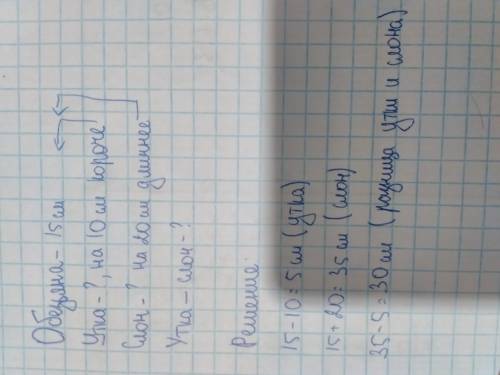 Обезьяна - 15 см
Утка - ?, на 10 см короче
Слон - ? на 20 см длиннее
Утка - слон - ?
Решение:
15 - 10 = 5 см (утка)
15 + 20 = 35 см (слон)
35 - 5 = 30 см (разница утки и слона)